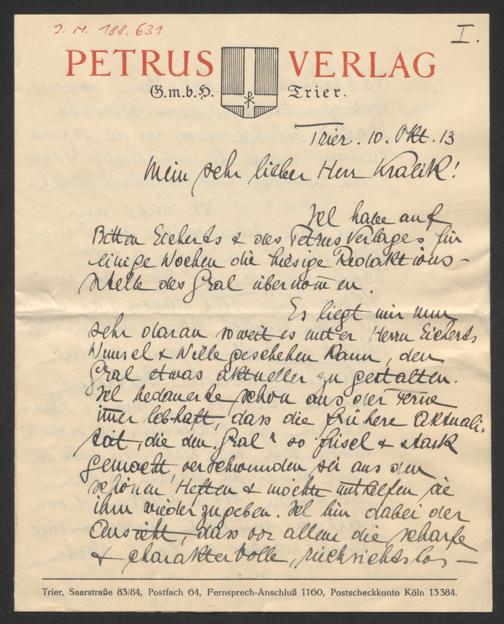 J. N. 188.631
I.
PETRUS VERLAG
G.m.b.H. Trier.
Trier. 10. Okt. 13
Mein sehr lieber Herr Kralik!
Ich habe auf
Bitten Eickerts & des Petrus Verlages für
einige Wochen die hiesige Redaktions-
stelle des Gral übernommen.
Es liegt mir nun
sehr daran soweit es unter Herrn Eickerts
Wunsch & Wille geschehen kann, den
Gral etwas aktueller zu gestalten.
Ich bedauerte schon aus der Ferne
immer lebhaft, dass die frühere Aktuali-
tät, die den „Gral“ so frisch & stark
gemacht, verschwunden sei aus den
schönen Heften & möchte mithelfen sie
ihm wiederzugeben. Ich bin dabei der
Ansicht, dass vor allem die scharfe
& charaktervolle, rücksichtslos-
Trier, Saarstraße 83/84, Postfach 64, Fernsprech-Anschluß 1160, Postscheckkonto Köln 13384.